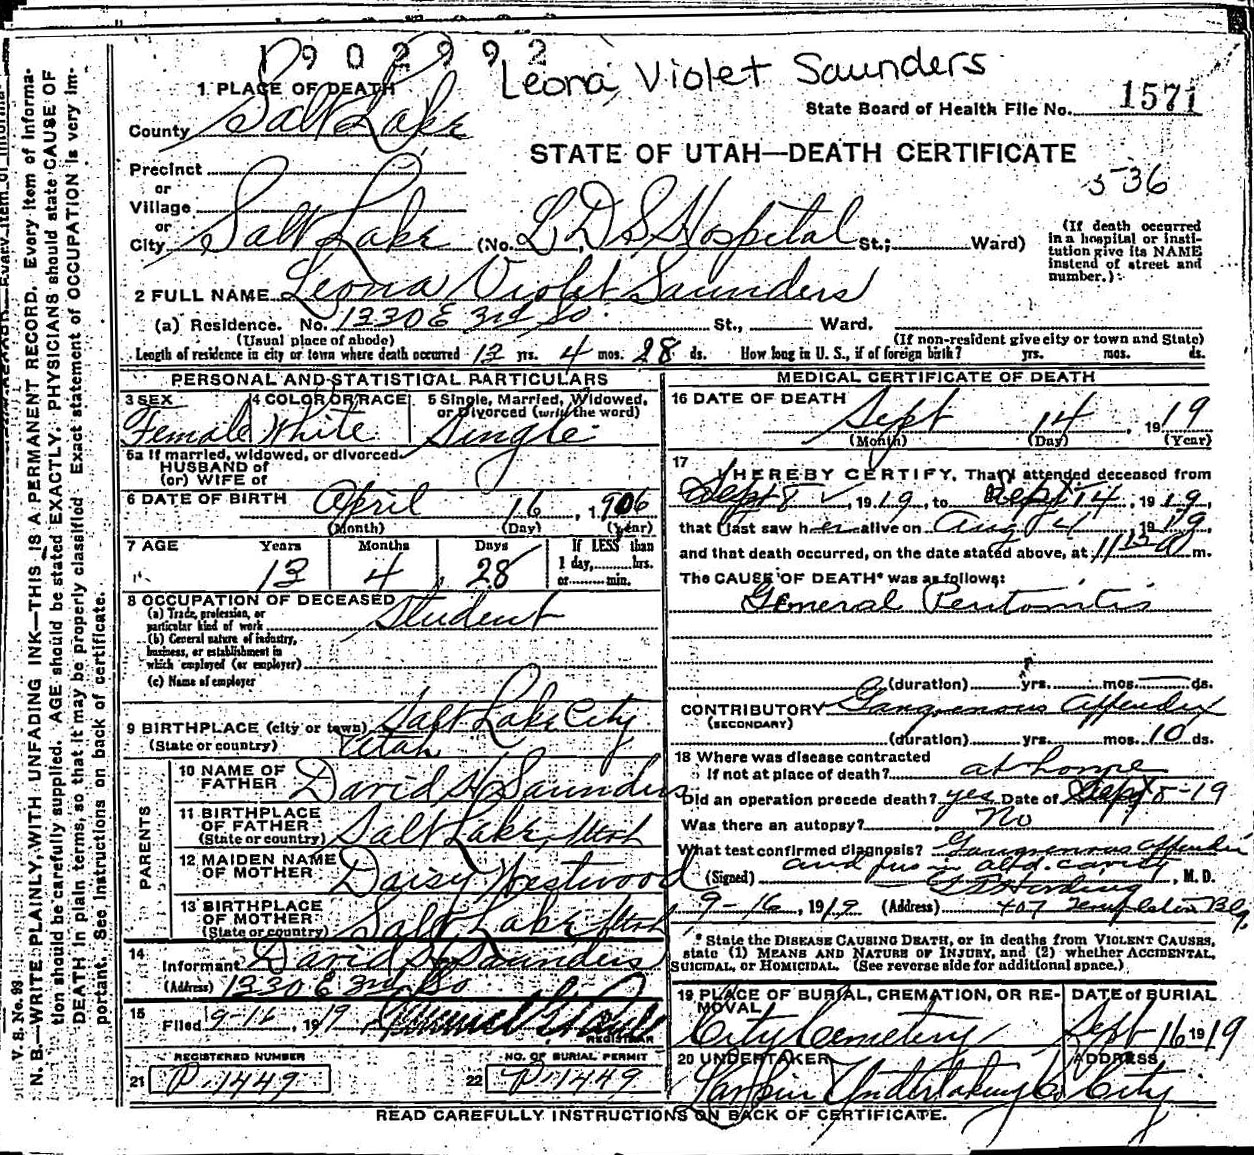 1902992
Leona Violet Saunders
1 PLACE OF DEATH
State Board of Health File No. 1571
County Salt Lake
STATE OF UTAH—DEATH CERTIFICATE
536
Precinct
or
Village
or
City Salt Lake (No. L D S Hospital St.; Ward)
(If death occurred in a hospital or institution give its NAME instead of street and number.)
2 FULL NAME Leona Violet Saunders
(a) Residence. No. 1330 E 3rd So. St., Ward.
(Usual place of abode) (If non-resident give city or town and State)
Length of residence in city or town where death occurred 13 yrs. 4 mos. 28 ds. How long in U. S., if of foreign birth? yrs. mos. ds.
PERSONAL AND STATISTICAL PARTICULARS
3 SEX 4 COLOR OR RACE 5 Single, Married, Widowed, or Divorced (write the word)
Female White Single
5a If married, widowed, or divorced
HUSBAND of
(or) WIFE of
6 DATE OF BIRTH April 16, 1906
(Month) (Day) (Year)
7 AGE Years Months Days If LESS than
1 day, hrs.
or min.
13 4 28
8 OCCUPATION OF DECEASED Student
(a) Trade, profession, or particular kind of work
(b) General nature of industry, business, or establishment in which employed (or employer)
(c) Name of employer
9 BIRTHPLACE (city or town) Salt Lake City
(State or country) Utah
PARENTS
10 NAME OF FATHER David H Saunders
11 BIRTHPLACE OF FATHER (State or country) Salt Lake, Utah
12 MAIDEN NAME OF MOTHER Daisy Westwood
13 BIRTHPLACE OF MOTHER (State or country) Salt Lake Utah
14 Informant David H Saunders
(Address) 1330 E 3rd So
15 Filed 9-16, 1919
REGISTRAR
REGISTERED NUMBER NO. OF BURIAL PERMIT
21 P.1449 22 P.1449
MEDICAL CERTIFICATE OF DEATH
16 DATE OF DEATH Sept 14, 1919
(Month) (Day) (Year)
17 I HEREBY CERTIFY, That I attended deceased from
Sept 8, 1919, to Sept 14, 1919,
that I last saw her alive on Aug 14, 1919
and that death occurred, on the date stated above, at m.
The CAUSE OF DEATH* was as follows:
General Peritonitis
(duration) yrs. mos. ds.
CONTRIBUTORY Gangrenous Appendix
(SECONDARY)
(duration) yrs. mos. 10 ds.
18 Where was disease contracted
If not at place of death? at home
Did an operation precede death? yes Date of Sept 8-19
Was there an autopsy? No
What test confirmed diagnosis? Gangrenous appendix
and pus in abd. cavity
(Signed) , M. D.
9-16, 1919 (Address) 407 Templeton Blg.
* State the DISEASE CAUSING DEATH, or in deaths from VIOLENT CAUSES,
state (1) MEANS AND NATURE OF INJURY, and (2) whether ACCIDENTAL,
SUICIDAL, or HOMICIDAL. (See reverse side for additional space.)
19 PLACE OF BURIAL, CREMATION, OR REMOVAL DATE of BURIAL
City Cemetery Sept 16 1919
20 UNDERTAKER ADDRESS
Larkin Undertaking Co City
READ CAREFULLY INSTRUCTIONS ON BACK OF CERTIFICATE.
V. S. No. 98
N. B.—WRITE PLAINLY, WITH UNFADING INK—THIS IS A PERMANENT RECORD. Every item of informa-
tion should be carefully supplied. AGE should be stated EXACTLY. PHYSICIANS should state CAUSE OF
DEATH in plain terms, so that it may be properly classified. Exact statement of OCCUPATION is very im-
portant. See instructions on back of certificate.